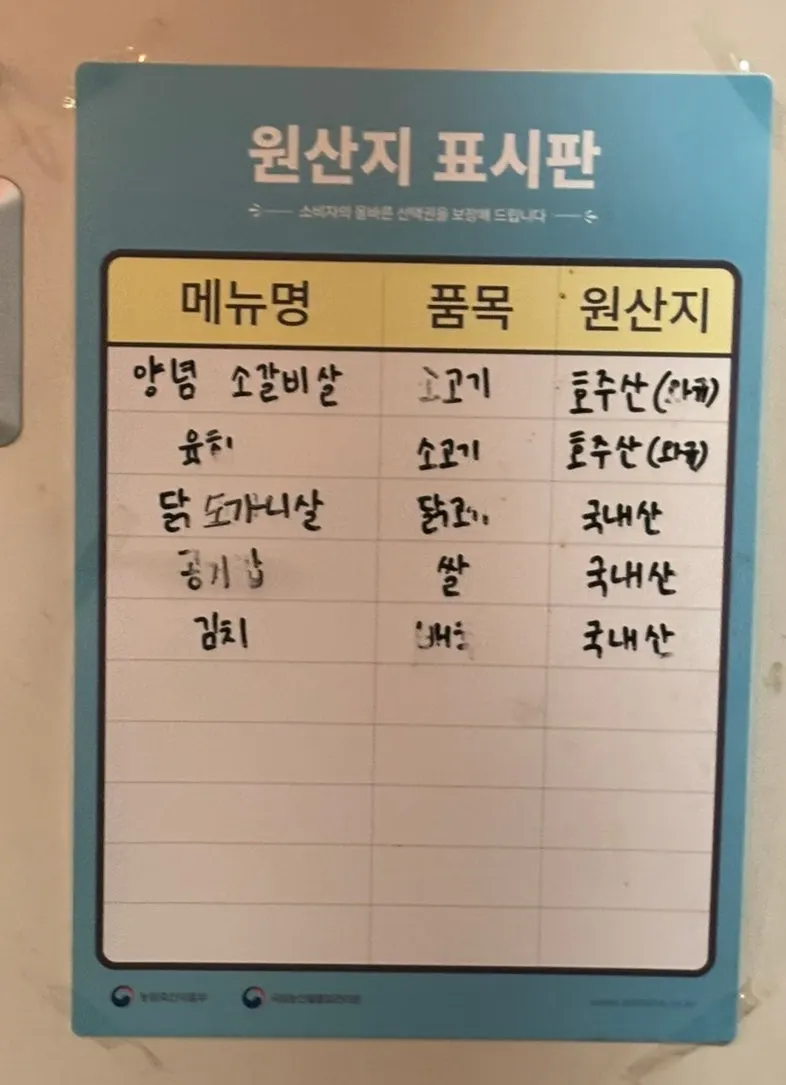 원산지 표시판
소비자의 올바른 선택권을 보장해 드립니다
메뉴명 품목 원산지
양념 소갈비살 소고기 호주산(와규)
육회 소고기 호주산(와규)
닭 도가니살 닭고기 국내산
공기밥 쌀 국내산
김치 배추 국내산
농림축산식품부 국립농산물품질관리원